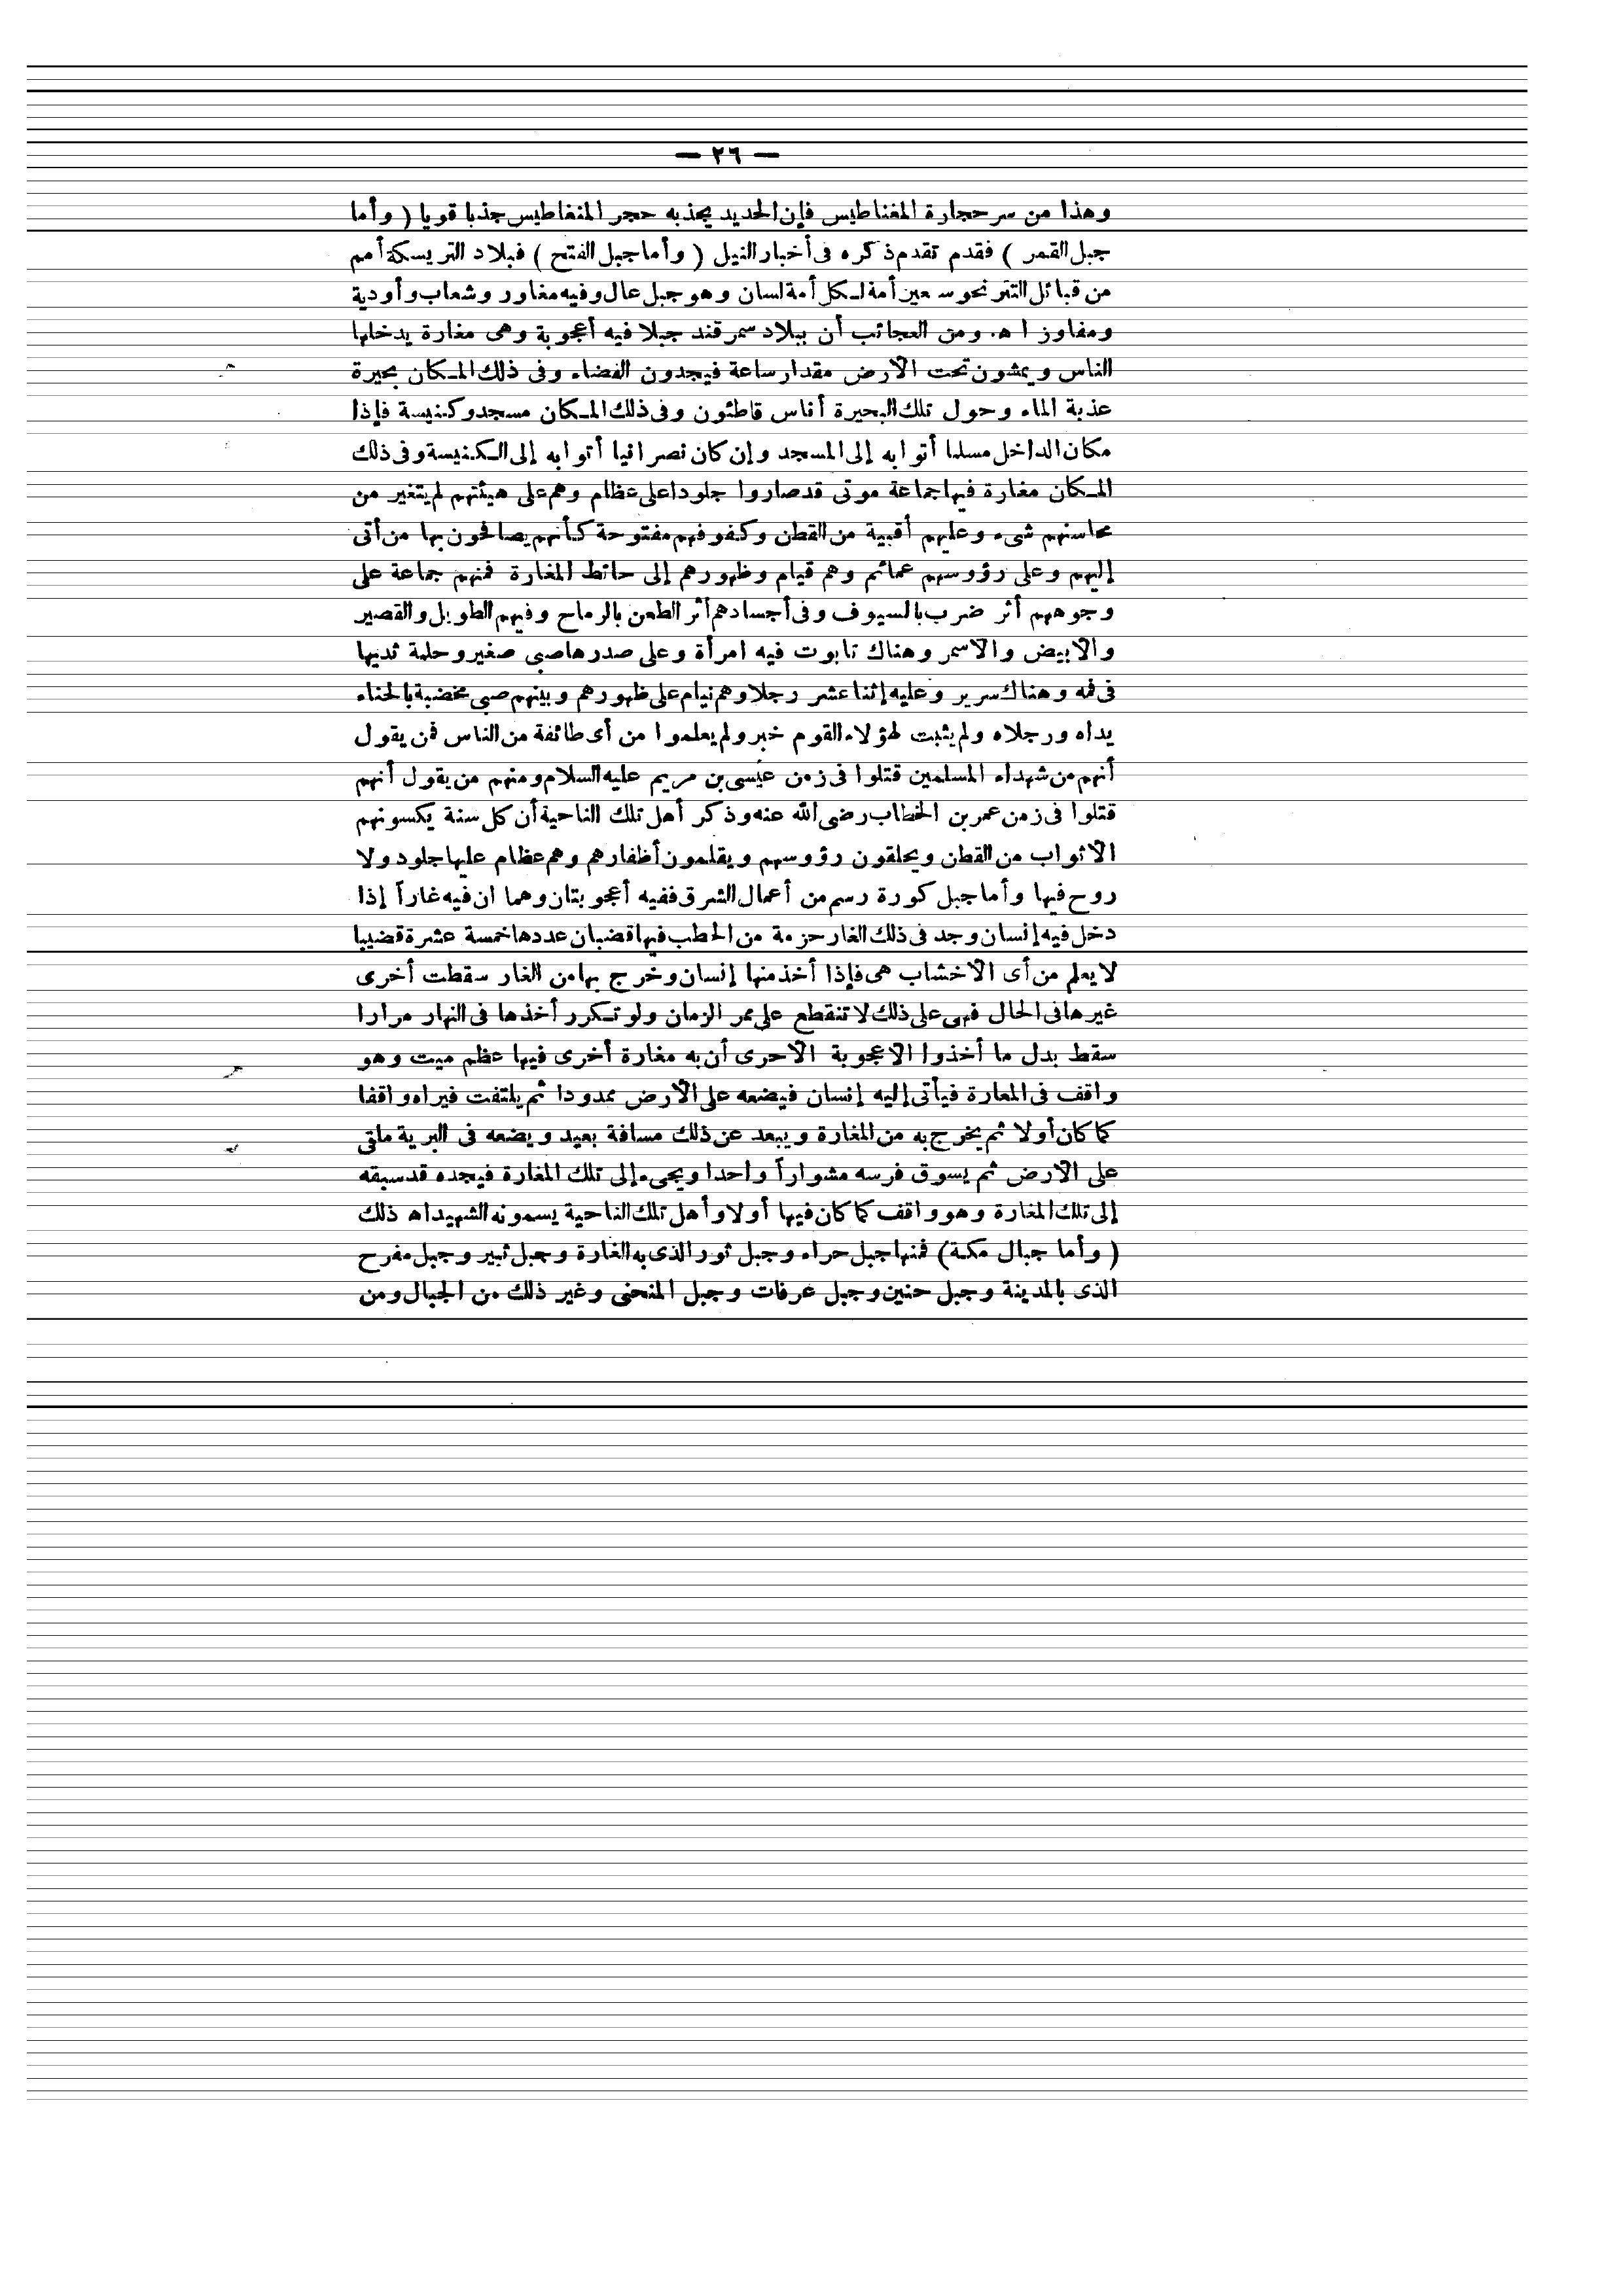 — ٢٦ —
وهذا من سر حجارة المغناطيس فإن الحديد يجذبه حجر المنغاطيس جذبا قويا ( وأما
جبل القمر ) فقدم تقدم ذكره فى أخبار النيل ( وأما جبل الفتح ) فبلاد التر يسكنه أمم
من قبائل التتر نحو سبعين أمة لكل أمة لسان وهو جبل عال وفيه مغاور وشعاب وأودية
ومفاوز ا هـ. ومن العجائب أن ببلاد سمرقند جبلا فيه أعجوبة وهى مغارة يدخلها
الناس ويمشون تحت الأرض مقدار ساعة فيجدون الفضاء وفى ذلك المكان بحيرة
عذبة الماء وحول تلك البحيرة أناس قاطئون وفى ذلك المكان مسجد وكنيسة فإذا
مكان الداخل مسلما أتوا به إلى المسجد وإن كان نصرانيا أتوا به إلى الكنيسة وفى ذلك
المكان مغارة فيها جماعة موتى قد صاروا جلودا على عظام وهم على هيئتهم لم يتغير من
محاسنهم شىء وعليهم أقبية من القطن وكفوفهم مفتوحة كأنهم يصافحون بها من أتى
إليهم وعلى رؤوسهم عمائم وهم قيام وظهورهم إلى حائط المغارة فمنهم جماعة على
وجوههم أثر ضرب بالسيوف وفى أجسادهم أثر الطعن بالرماح وفيهم الطويل والقصير
والأبيض والأسمر وهناك تابوت فيه امرأة وعلى صدرها صبى صغير وحلمة ثديها
فى فمه وهناك سرير وعليه إثنا عشر رجلا وهم نيام على ظهورهم وبينهم صبى مخضبة بالحناء
يداه ورجلاه ولم يثبت لهؤلاء القوم خبر ولم يعلموا من أى طائفة من الناس فمن يقول
أنهم من شهداء المسلمين قتلوا فى زمن عيسى بن مريم عليه السلام ومنهم من يقول أنهم
قتلوا فى زمن عمر بن الخطاب رضى الله عنه وذكر أهل تلك الناحية أن كل سنة يكسونهم
الأثواب من القطن ويحلقون رؤوسهم ويقلمون أظفارهم وهم عظام عليها جلود ولا
روح فيها وأما جبل كورة رسم من أعمال الشرق ففيه أعجوبتان وهما ان فيه غاراً إذا
دخل فيه إنسان وجد فى ذلك الغار حزمة من الحطب فيها قضبان عددها خمسة عشرة قضيبا
لا يعلم من أى الأخشاب هى فإذا أخذ منها إنسان وخرج بها من الغار سقطت أخرى
غيرها فى الحال فهى على ذلك لا تنقطع على ممر الزمان ولو تكرر أخذها فى النهار مرارا
سقط بدل ما أخذوا الأعجوبة الأحرى أن به مغارة أخرى فيها عظم ميت وهو
واقف فى المعارة فيأتى إليه إنسان فيضعه على الأرض ممدودا ثم يلتفت فيراه واقفا
كما كان أولا ثم يخرج به من المغارة ويبعد عن ذلك مسافة بعيد ويضعه فى البرية ملقى
على الأرض ثم يسوق فرسه مشواراً واحدا ويجىء إلى تلك المغارة فيجده قد سبقه
إلى تلك المغارة وهو واقف كما كان فيها أولا وأهل تلك الناحية يسمونه الشهيد اه ذلك
( وأما جبال مكة) فمنها جبل حراء وجبل ثور الذى به الغارة وجبل ثبير وجبل مفرح
الذى بالمدينة وجبل حنين وجبل عرفات وجبل المنحنى وغير ذلك من الجبال ومن